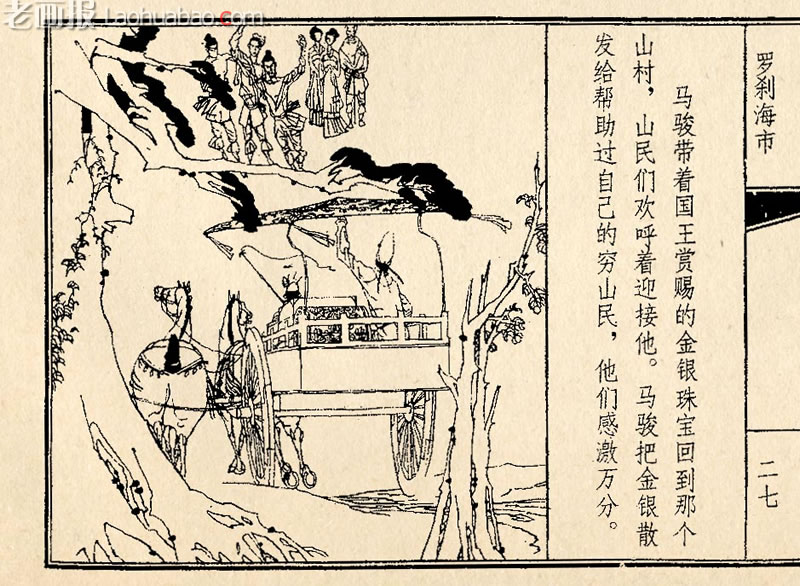 老画报
Laohuabao.com
罗刹海市
马骏带着国王赏赐的金银珠宝回到那个
山村，山民们欢呼着迎接他。马骏把金银散
发给帮助过自己的穷山民，他们感激万分。
二七